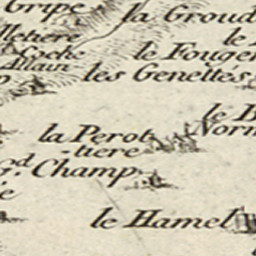 Gripe
la Groud
Metiere
Coche
Allain
le Fouger
les Genettes
le B
Norm
la Perot
-tiere
G.d Champ
le Hamel